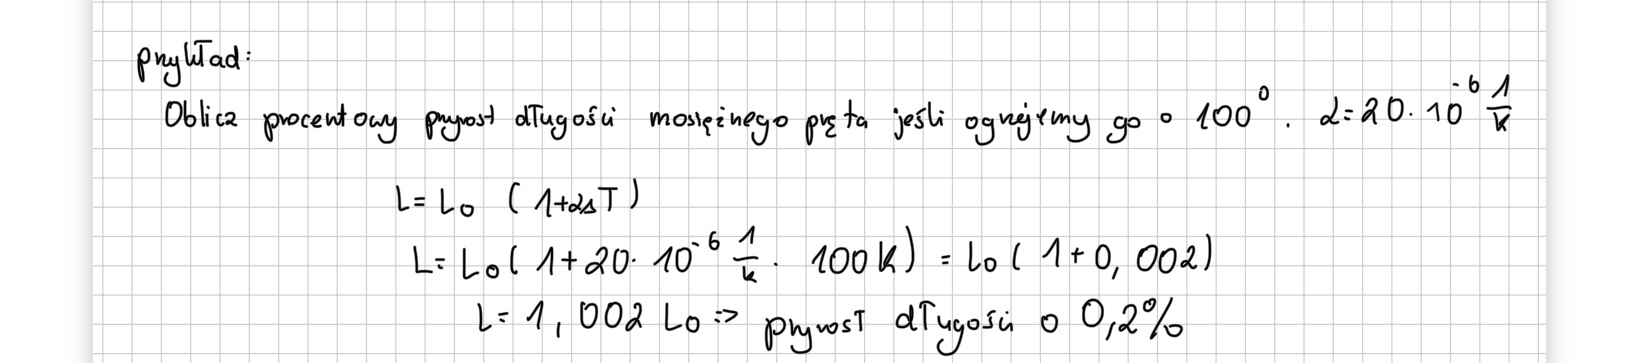 przykład:
Oblicz procentowy przyrost długości mosiężnego pręta jeśli ogrzejemy go o 100⁰. α=20·10⁻⁶ 1/K
L=L₀ (1+αΔT)
L=L₀(1+20·10⁻⁶ 1/K · 100K) = L₀(1+0,002)
L=1,002 L₀ => przyrost długości o 0,2%